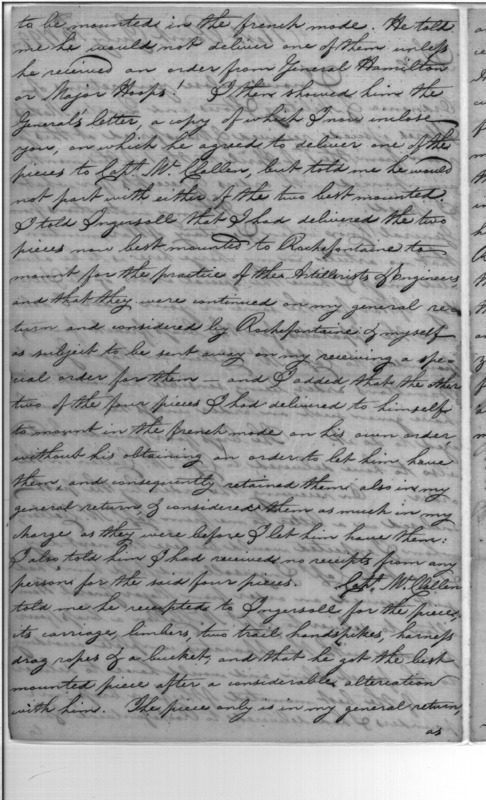 to be mounted in the french mode. He told
me he would not deliver one of them unless
he received an order from General Hamilton
or Major Hoops! I then showed him the
General's letter, a copy of which I now inclose
you, on which he agreed to deliver one of the
pieces to Capt. McClallen, but told me he would
not part with either of the two best mounted.
I told Ingersoll that I had delivered the two
pieces now best mounted to Rochefontaine to
mount for the practice of the Artillerists & Engineers
and that they were continued on my general re-
turn and considered by Rochefontaine & myself
as subject to be sent away on my receiving a spe-
cial order for them — and I added that the other
two of the four pieces I had delivered to himself
to mount in the french mode on his own order
without his obtaining an order to let him have
them, and consequently retained them also in my
general return & considered them as much in my
charge as they were before I let him have them:
I also told him I had received no receipts from any
persons for the said four pieces. Capt. McClallen
told me he receipted to Ingersoll for the piece,
its carriage, limbers, two trail handspikes, harness
drag ropes & a bucket, and that he got the best
mounted piece after a considerable altercation
with him. The piece only is in my general return,
as